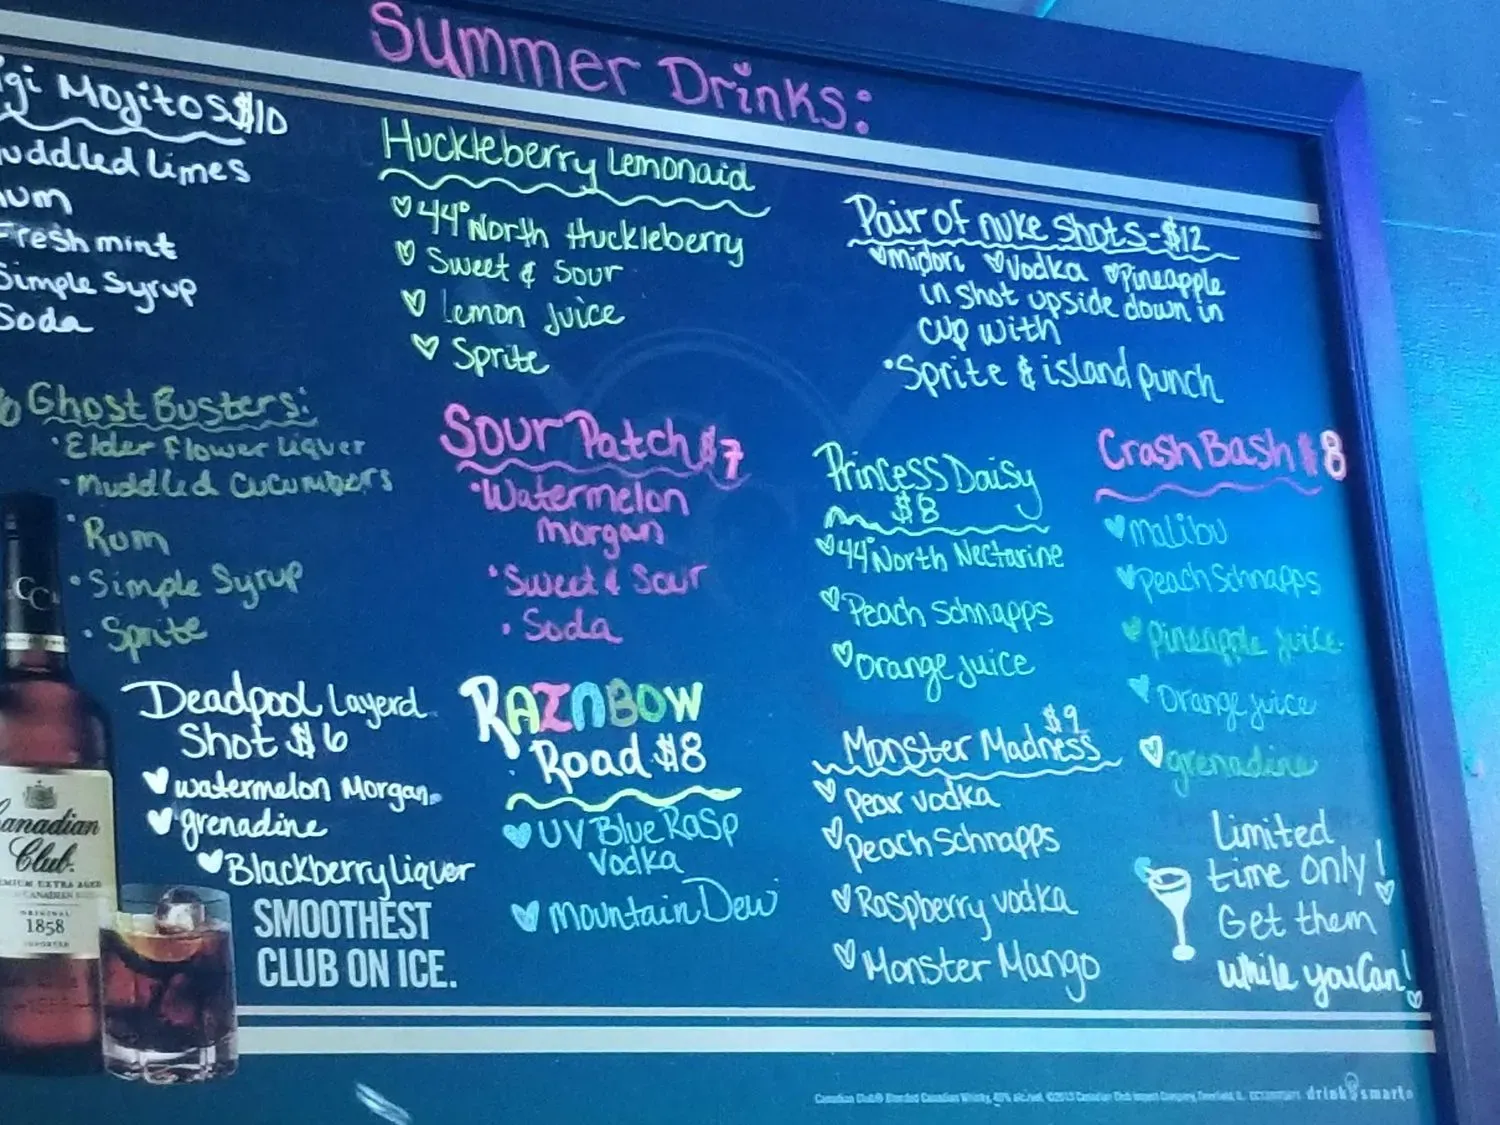 Summer Drinks:
igi Mojitos $10
uddled limes
um
Fresh mint
Simple Syrup
Soda
Huckleberry Lemonaid
44° North Huckleberry
Sweet & Sour
Lemon Juice
Sprite
Pair of nuke shots - $12
Midori Vodka Pineapple
in shot upside down in
cup with
Sprite & island punch
Ghost Busters:
Elder Flower Liquer
Muddled Cucumbers
Rum
Simple Syrup
Sprite
Sour Patch $7
Watermelon
Morgan
Sweet & Sour
Soda
Princess Daisy
$8
44° North Nectarine
Peach Schnapps
Orange Juice
Crash Bash $8
Malibu
Peach Schnapps
Pineapple Juice
Orange Juice
grenadine
Deadpool Layerd
Shot $6
watermelon Morgan
grenadine
Blackberry Liquer
RAINBOW
Road $8
UV Blue Rasp
Vodka
Mountain Dew
$9
Monster Madness
Pear vodka
Peach Schnapps
Raspberry vodka
Monster Mango
Limited
time only!
Get them
while you can!
CC
Canadian
Club.
PREMIUM EXTRA AGED
ORIGINAL
1858
IMPORTED
SMOOTHEST
CLUB ON ICE.
Canadian Club® Blended Canadian Whisky, 40% alc./vol. ©2013 Canadian Club Import Company, Deerfield, IL
drink smart